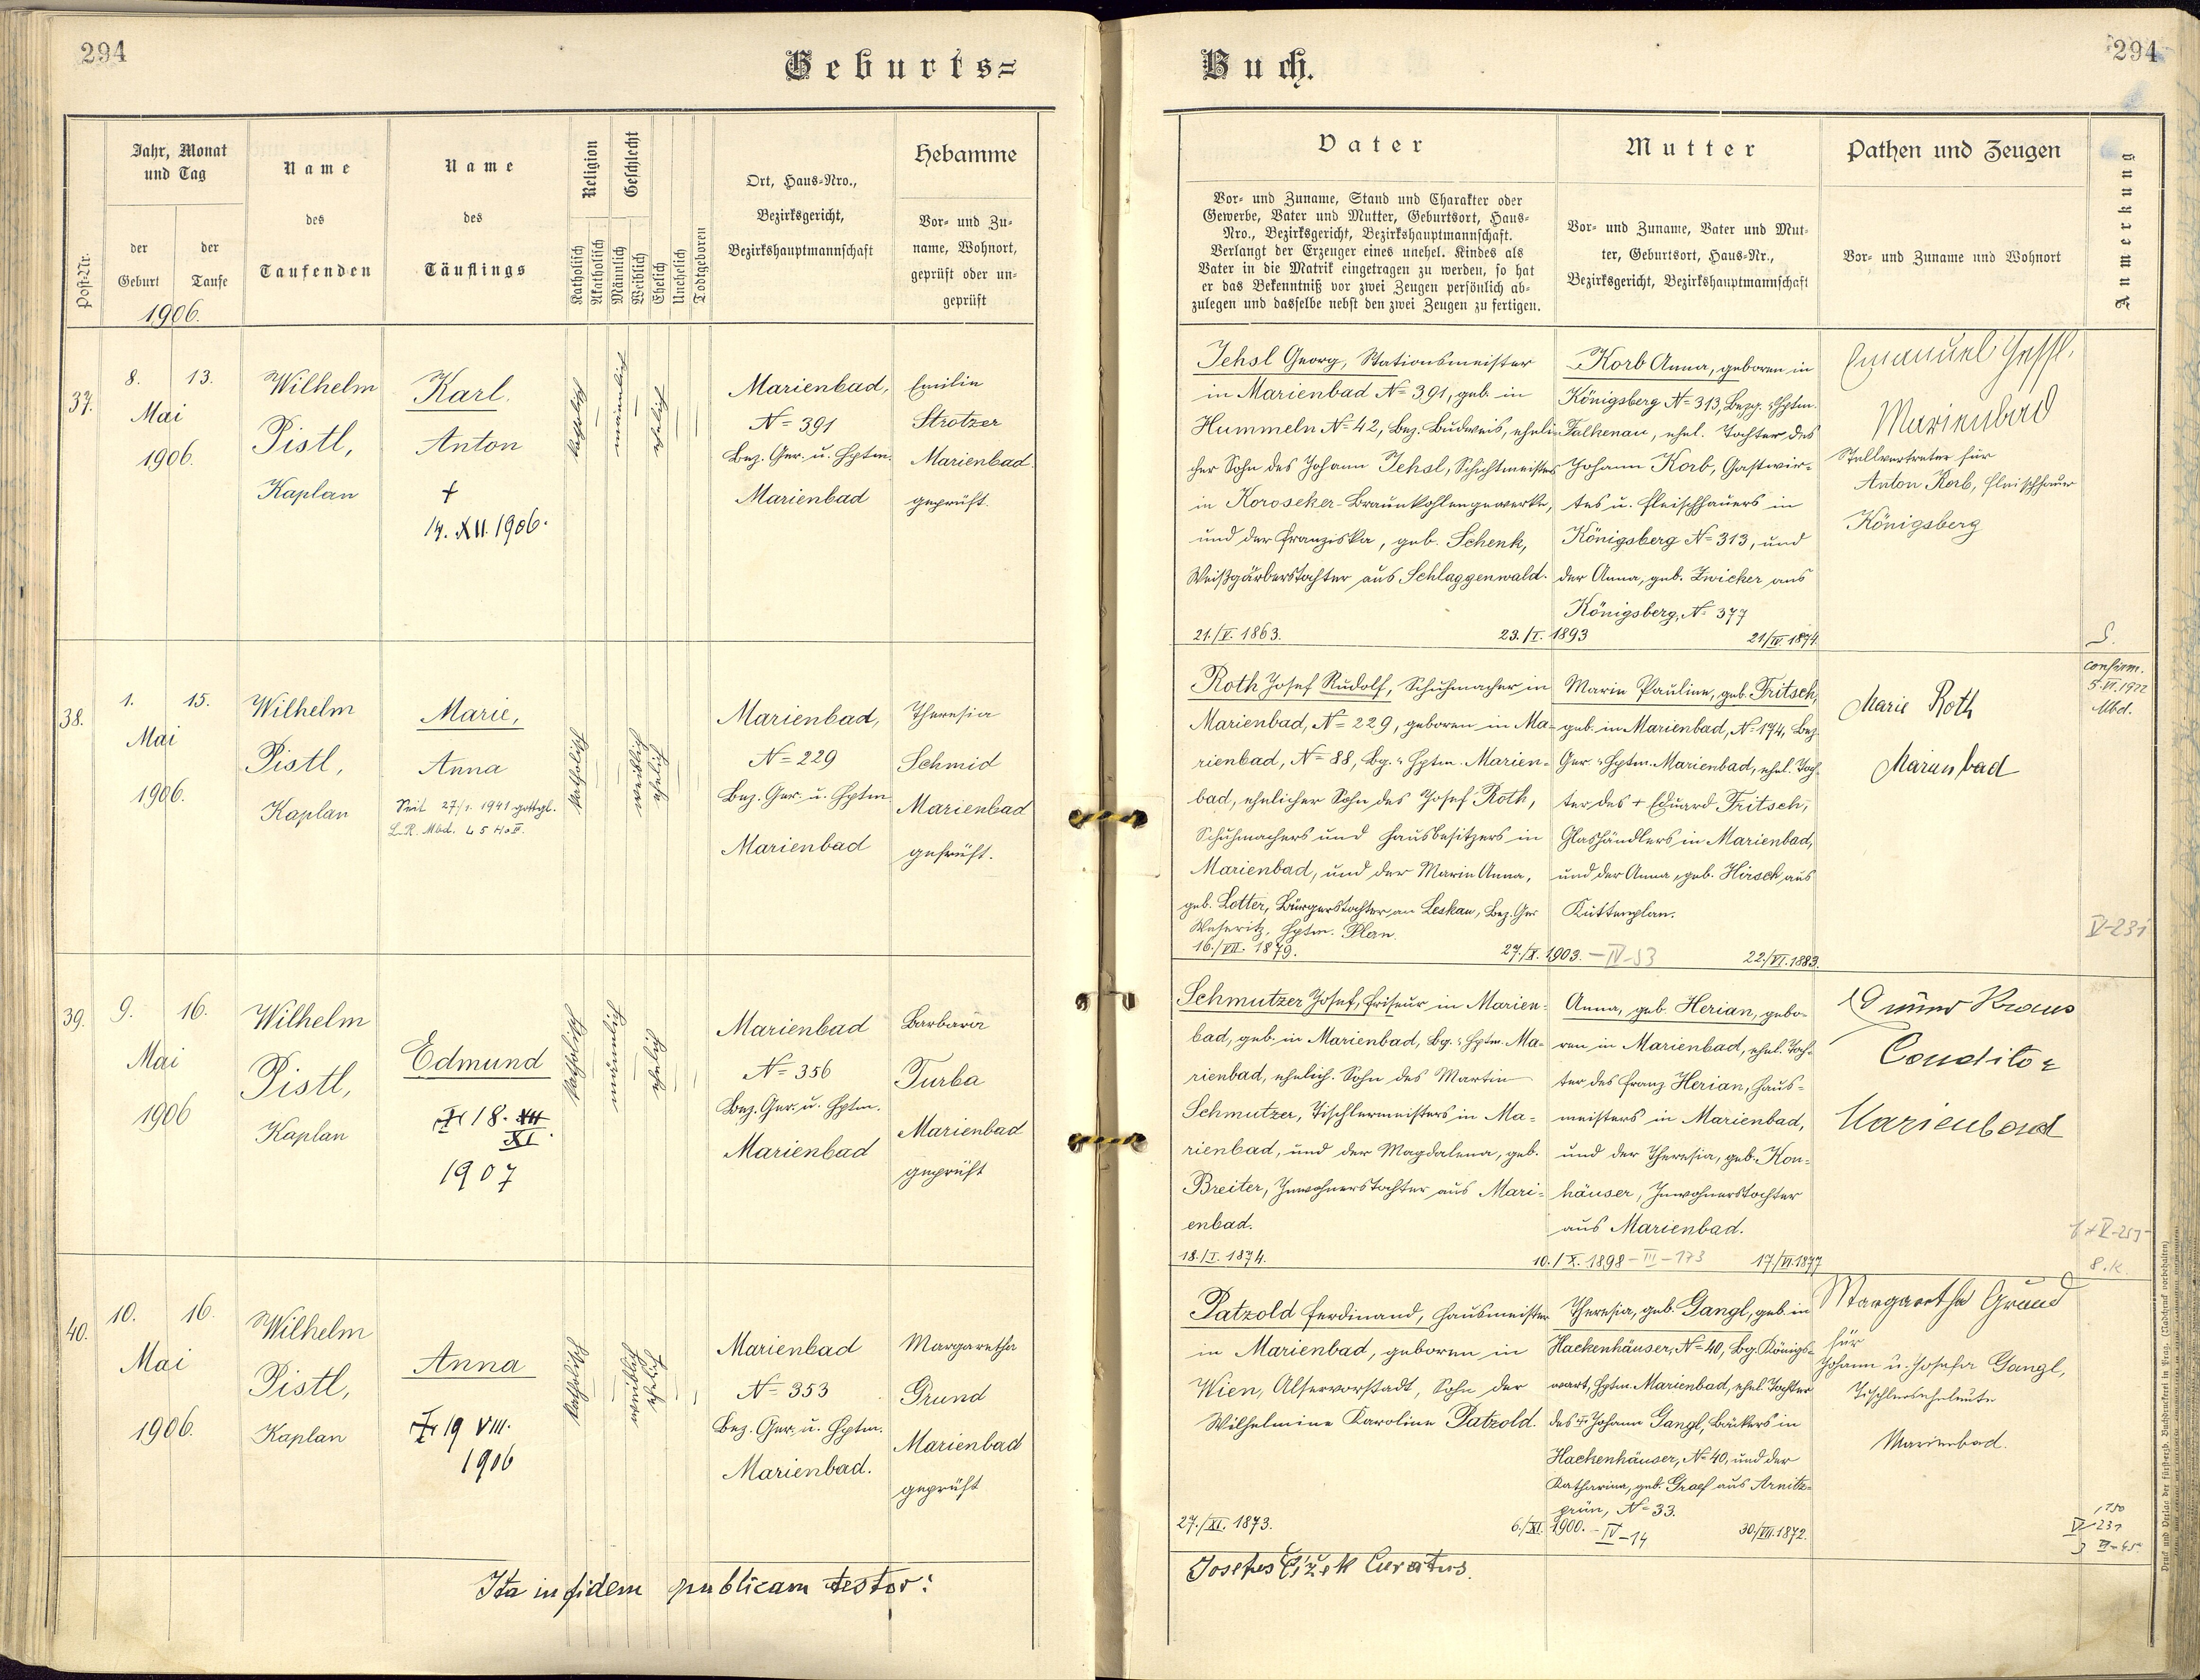 294
Geburts=
Jahr, Monat
und Tag
Post-Nr.
der
Geburt
der
Taufe
1906.
Name
des
Taufenden
Name
des
Täuflings
Religion
Katholisch
Akatholisch
Geschlecht
Männlich
Weiblich
Ehelich
Unehelich
Todtgeboren
Ort, Haus-Nro.,
Bezirksgericht,
Bezirkshauptmannschaft
Hebamme
Vor- und Zu-
name, Wohnort,
geprüft oder un-
geprüft
37.
8. 13.
Mai
1906.
Wilhelm
Pistl,
Kaplan
Karl.
Anton
+
14. XII. 1906.
katholisch
männlich
ehelich
Marienbad,
N= 391
Bez. Ger. u. Hptm.
Marienbad
Emilie
Strotzer
Marienbad
geprüft.
38.
1. 15.
Mai
1906.
Wilhelm
Pistl,
Kaplan
Marie,
Anna
Seit 27/1. 1941 gottgl.
L.R. Mbd.
katholisch
weiblich
ehelich
Marienbad,
N= 229
Bez. Ger. u. Hptm
Marienbad
Theresia
Schmid
Marienbad
geprüft.
39.
9. 16.
Mai
1906
Wilhelm
Pistl,
Kaplan
Edmund
18. XII
XI.
1907
katholisch
männlich
ehelich
Marienbad
N= 356
Bez. Ger. u. Hptm.
Marienbad
Barbara
Turba
Marienbad
geprüft
40.
10. 16.
Mai
1906.
Wilhelm
Pistl,
Kaplan
Anna
19 VIII.
1906
katholisch
weiblich
ehelich
Marienbad
N= 353
Bez. Ger. u. Hptm.
Marienbad.
Margaretha
Grund
Marienbad
geprüft
Ita in fidem publicam testor:
Buch.
294
Vater
Vor- und Zuname, Stand und Charakter oder
Gewerbe, Vater und Mutter, Geburtsort, Haus-
Nro., Bezirksgericht, Bezirkshauptmannschaft.
Verlangt der Erzeuger eines unehel. Kindes als
Vater in die Matrik eingetragen zu werden, so hat
er das Bekenntniß vor zwei Zeugen persönlich ab-
zulegen und dasselbe nebst den zwei Zeugen zu fertigen.
Mutter
Vor- und Zuname, Vater und Mut-
ter, Geburtsort, Haus-Nr.,
Bezirksgericht, Bezirkshauptmannschaft
Pathen und Zeugen
Vor- und Zuname und Wohnort
Anmerkung
Jehsl Georg, Stationsmeister
in Marienbad N= 391, geb. in
Hummeln N= 42, Bez. Budweis, eheli-
cher Sohn des Johann Jehsl, Schichtmeisters
in Koroseker-Braunkohlengewerke,
und der Franziska, geb. Schenk,
Weißgärberstochter aus Schlaggenwald.
21./V. 1863.
23./I. 1893
Korb Anna, geboren in
Königsberg N= 313, Bezg. u. Hptm.
Falkenau, ehel. Tochter des
Johann Korb, Gastwir-
tes u. Fleischhauers in
Königsberg N= 313, und
der Anna, geb. Zwicker aus
Königsberg, N= 377
21/IV. 1874
Emanuel
Marienbad
Stellvertreter für
Anton Korb, Fleischhauer
Königsberg
Roth Josef Rudolf, Schuhmacher in
Marienbad, N= 229, geboren in Ma-
rienbad, N= 88, Bg. u. Hptm. Marien-
bad, ehelicher Sohn des Josef Roth,
Schuhmachers und Hausbesitzers in
Marienbad, und der Marie Anna,
geb. Lotter, Bürgerstochter aus Leskau, Bez. Ger
Weseritz, Hptm. Plan.
16./VII. 1879.
27./X. 1903. – IV-53
Marie Pauline, geb. Fritsch,
geb. in Marienbad, N= 174, Bez.
Ger. u. Hptm. Marienbad, ehel. Toch-
ter des + Eduard Fritsch,
Glashändlers in Marienbad,
und der Anna, geb. Hirsch aus
Kuttenplan.
22./VI. 1883.
Marie Roth
Marienbad
confirm.
5. VI. 1922
Mbd.
V-231
Schmutzer Josef, Friseur in Marien-
bad, geb. in Marienbad, Bg. u. Hptm. Ma-
rienbad, ehelich. Sohn des Martin
Schmutzer, Tischlermeisters in Ma-
rienbad, und der Magdalena, geb.
Breiter, Inwohnerstochter aus Mari-
enbad.
18./I. 1874.
10./X. 1898 – III – 173
Anna, geb. Herian, gebo-
ren in Marienbad, ehel. Toch-
ter des Franz Herian, Haus-
meisters in Marienbad,
und der Theresia, geb. Kon-
häuser, Inwohnerstochter
aus Marienbad.
17/VI. 1877
Kraus
Conditor
Marienbad
Patzold Ferdinand, Hausmeister
in Marienbad, geboren in
Wien, Alservorstadt, Sohn der
Wilhelmine Karoline Patzold.
27./XI. 1873.
6./XI. 1900. – IV-14
Theresia, geb. Gangl, geb. in
Hackenhäuser, N= 40, Bg. Königs-
wart, Hptm. Marienbad, ehel. Tochter
des + Johann Gangl, Bäckers in
Hackenhäuser, N= 40, und der
Katharina, geb. Graef aus Arnits-
grün, N= 33.
30/VII. 1872.
Margaretha Grund
für
Johann u. Josefa Gangl,
Tischlerseheleute
Marienbad.
V-231
Josefus Čížek Curatus.